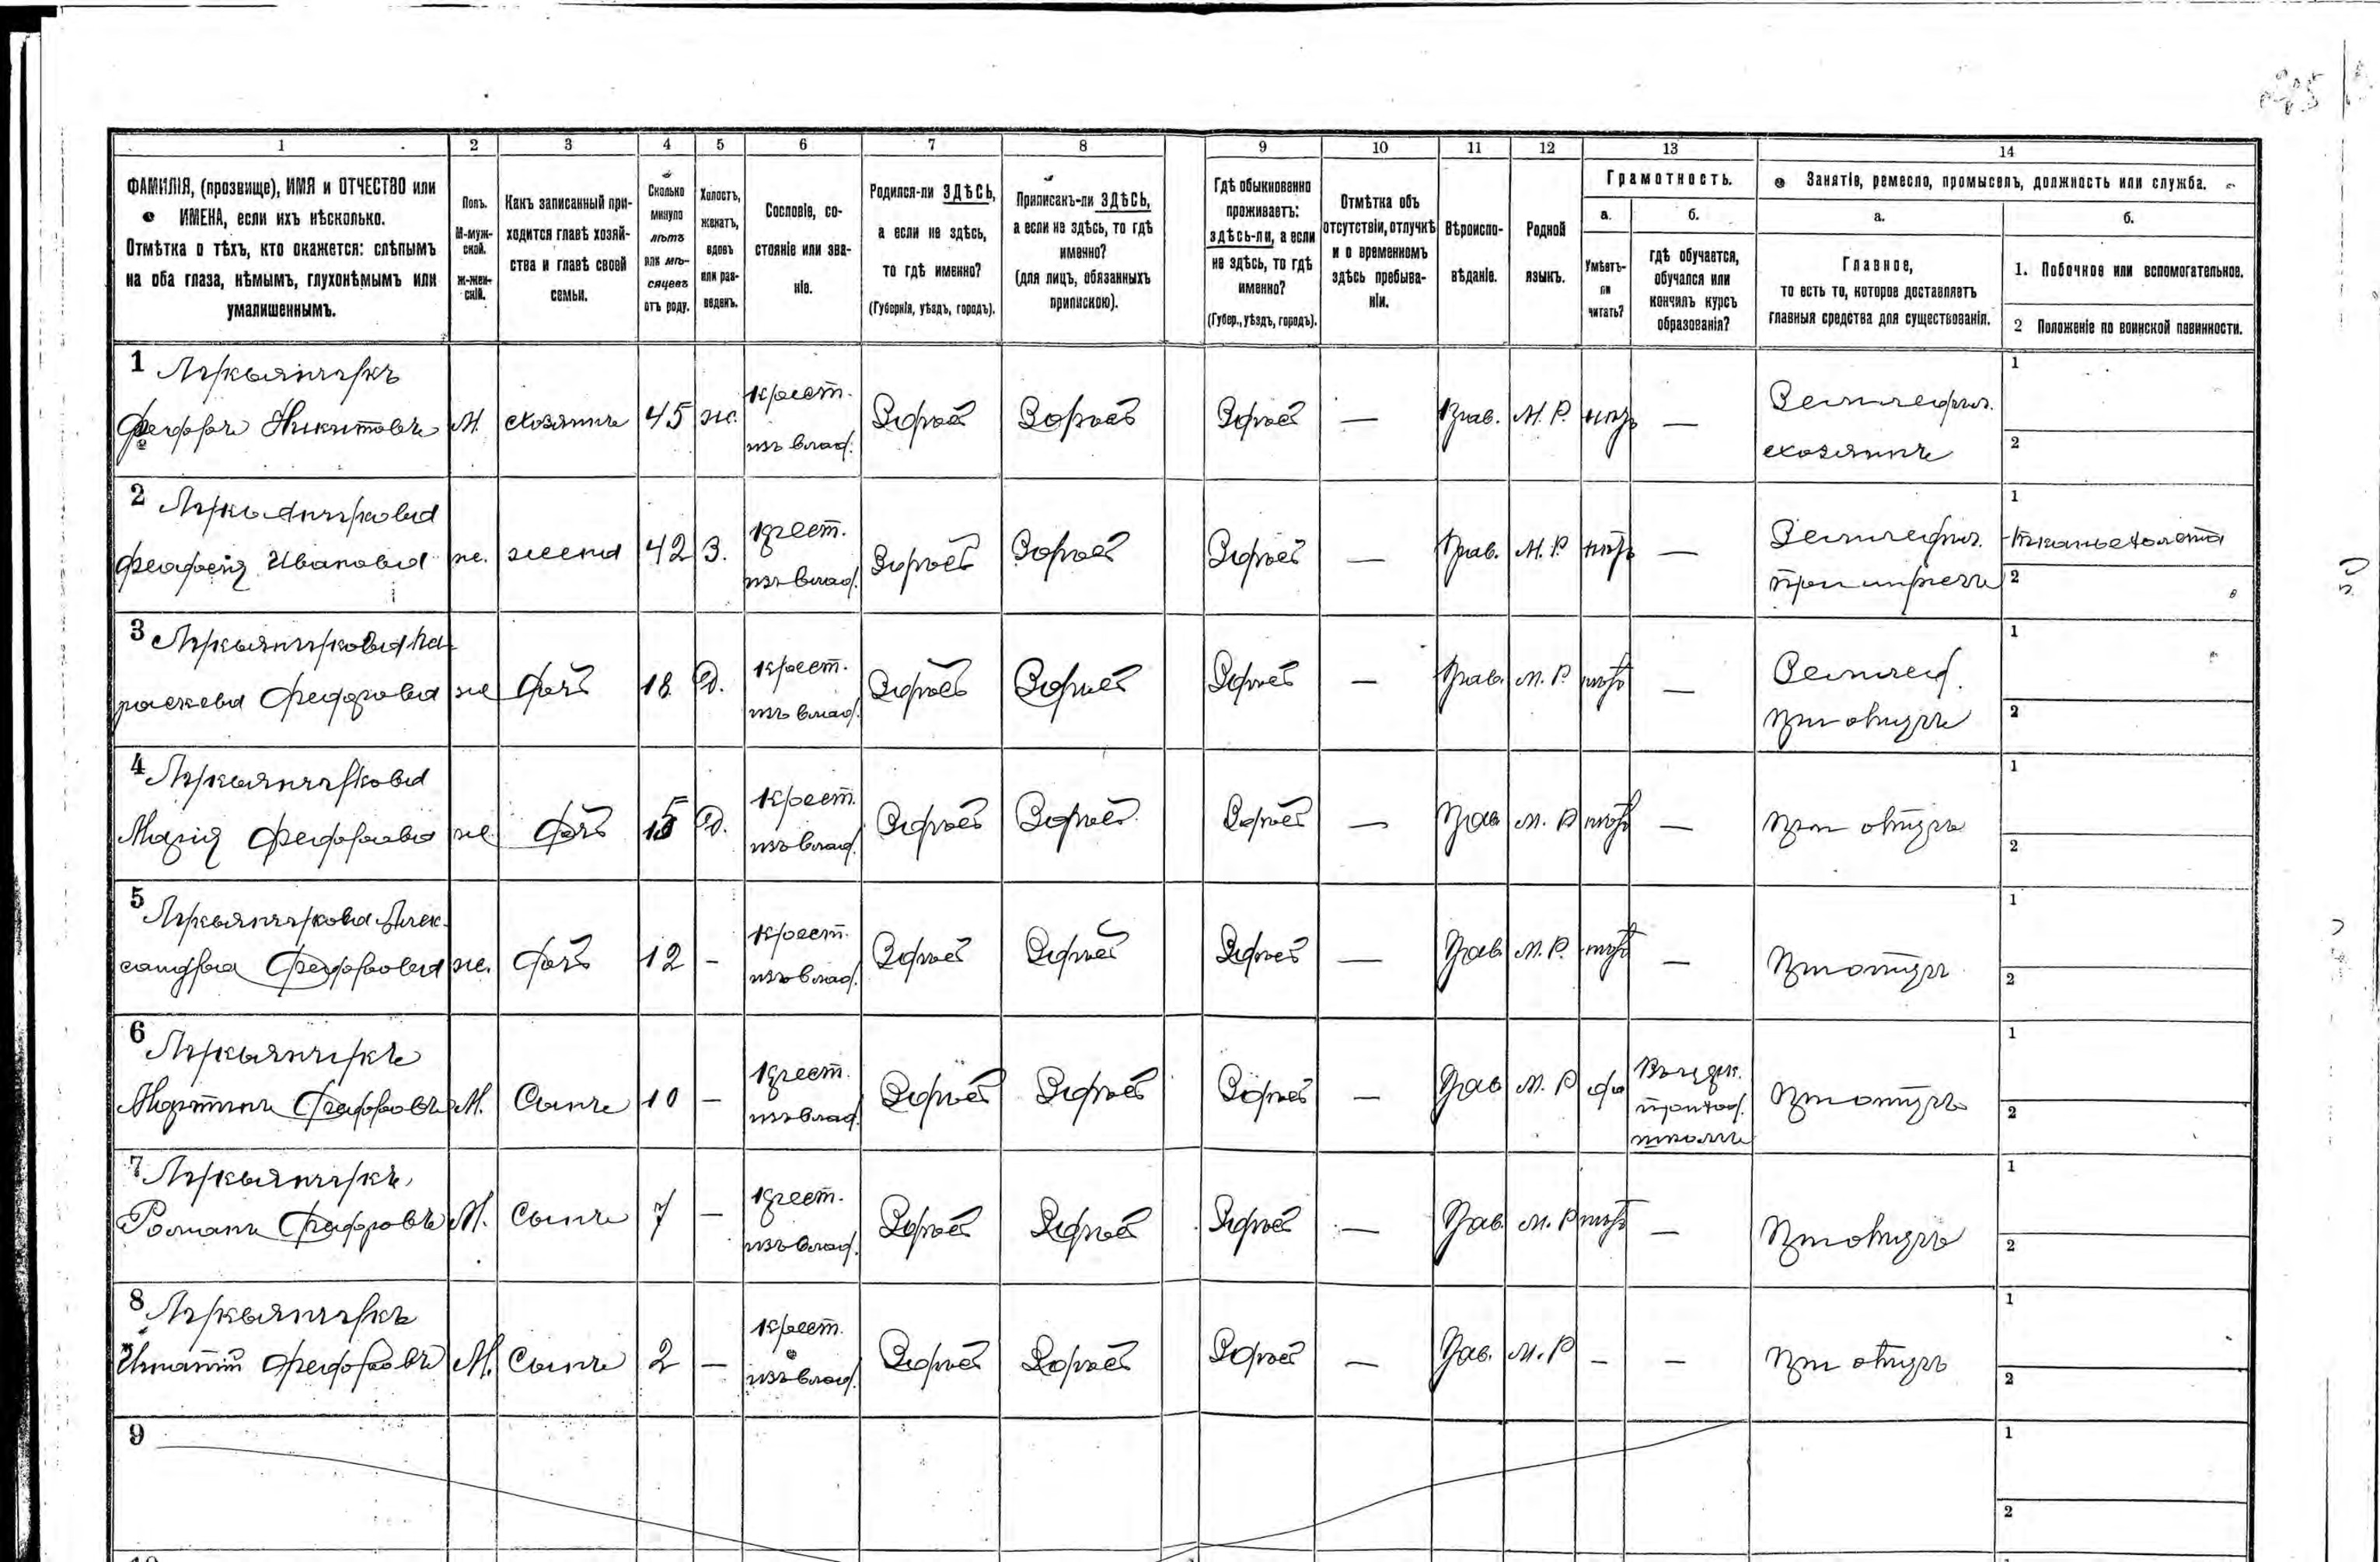 1
2
3
4
5
6
7
8
9
10
11
12
13
14
ФАМИЛІЯ, (прозвище), ИМЯ и ОТЧЕСТВО или
ИМЕНА, если ихъ нѣсколько.
Отмѣтка о тѣхъ, кто окажется: слѣпымъ
на оба глаза, нѣмымъ, глухонѣмымъ или
умалишеннымъ.
Полъ.
М-муж-
ской.
Ж-жен-
скій.
Какъ записанный при-
ходится главѣ хозяй-
ства и главѣ своей
семьи.
Сколько
минуло
лѣтъ
или мѣ-
сяцевъ
отъ роду.
Холостъ,
женатъ,
вдовъ
или раз-
веденъ.
Сословіе, со-
стояніе или зва-
ніе.
Родился-ли ЗДѢСЬ,
а если не здѣсь,
то гдѣ именно?
(Губернія, уѣздъ, городъ).
Приписанъ-ли ЗДѢСЬ,
а если не здѣсь, то гдѣ
именно?
(для лицъ, обязанныхъ
припискою).
Гдѣ обыкновенно
проживаетъ:
здѣсь-ли, а если
не здѣсь, то гдѣ
именно?
(Губер., уѣздъ, городъ).
Отмѣтка объ
отсутствіи, отлучкѣ
и о временномъ
здѣсь пребыва-
ніи.
Вѣроиспо-
вѣданіе.
Родной
языкъ.
Грамотность.
а.
Умѣетъ-
ли
читать?
б.
гдѣ обучается,
обучался или
кончилъ курсъ
образованія?
Занятіе, ремесло, промыселъ, должность или служба.
а.
Главное,
то есть то, которое доставляетъ
главныя средства для существованія.
б.
1. Побочное или вспомогательное.
2 Положеніе по воинской повинности.
1 Лукьянчукъ
Федоръ Никитовъ
М.
хозяинъ
45
ж.
крест.
изъ влад.
Здѣсь
Здѣсь
Здѣсь
—
Прав.
М. Р.
нѣтъ
—
Земледѣл.
хозяинъ
1
2
2 Лукьянчукова
Ивановна
ж.
жена
42
З.
крест.
изъ влад.
Здѣсь
Здѣсь
Здѣсь
—
Прав.
М. Р.
нѣтъ
—
Земледѣл.
при мужѣ
1
2
3 Лукьянчукова Па-
раскева Федорова
ж
дочь
18
Д.
крест.
изъ влад.
Здѣсь
Здѣсь
Здѣсь
—
Прав.
М. Р.
нѣтъ
—
Землед.
при отцѣ
1
2
4 Лукьянчукова
Марія Федорова
ж.
дочь
15
Д.
крест.
изъ влад.
Здѣсь
Здѣсь
Здѣсь
—
Прав
М. Р
нѣтъ
—
при отцѣ
1
2
5 Лукьянчукова Алек-
сандра Федорова
ж.
дочь
12
-
крест.
изъ влад.
Здѣсь
Здѣсь
Здѣсь
—
Прав
М. Р.
нѣтъ
—
при отцѣ
1
2
6 Лукьянчукъ
Мартинъ Федоровъ
М.
Сынъ
10
—
крест.
изъ влад.
Здѣсь
Здѣсь
Здѣсь
—
Прав
М. Р
да
школѣ
при отцѣ
1
2
7 Лукьянчукъ
Романъ Федоровъ
М.
Сынъ
7
—
крест.
изъ влад.
Здѣсь
Здѣсь
Здѣсь
—
Прав
М. Р
нѣтъ
—
при отцѣ
1
2
8 Лукьянчукъ
Игнатій Федоровъ
М.
Сынъ
2
—
крест.
изъ влад.
Здѣсь
Здѣсь
Здѣсь
—
Прав.
М. Р
–
–
при отцѣ
1
2
9
1
2